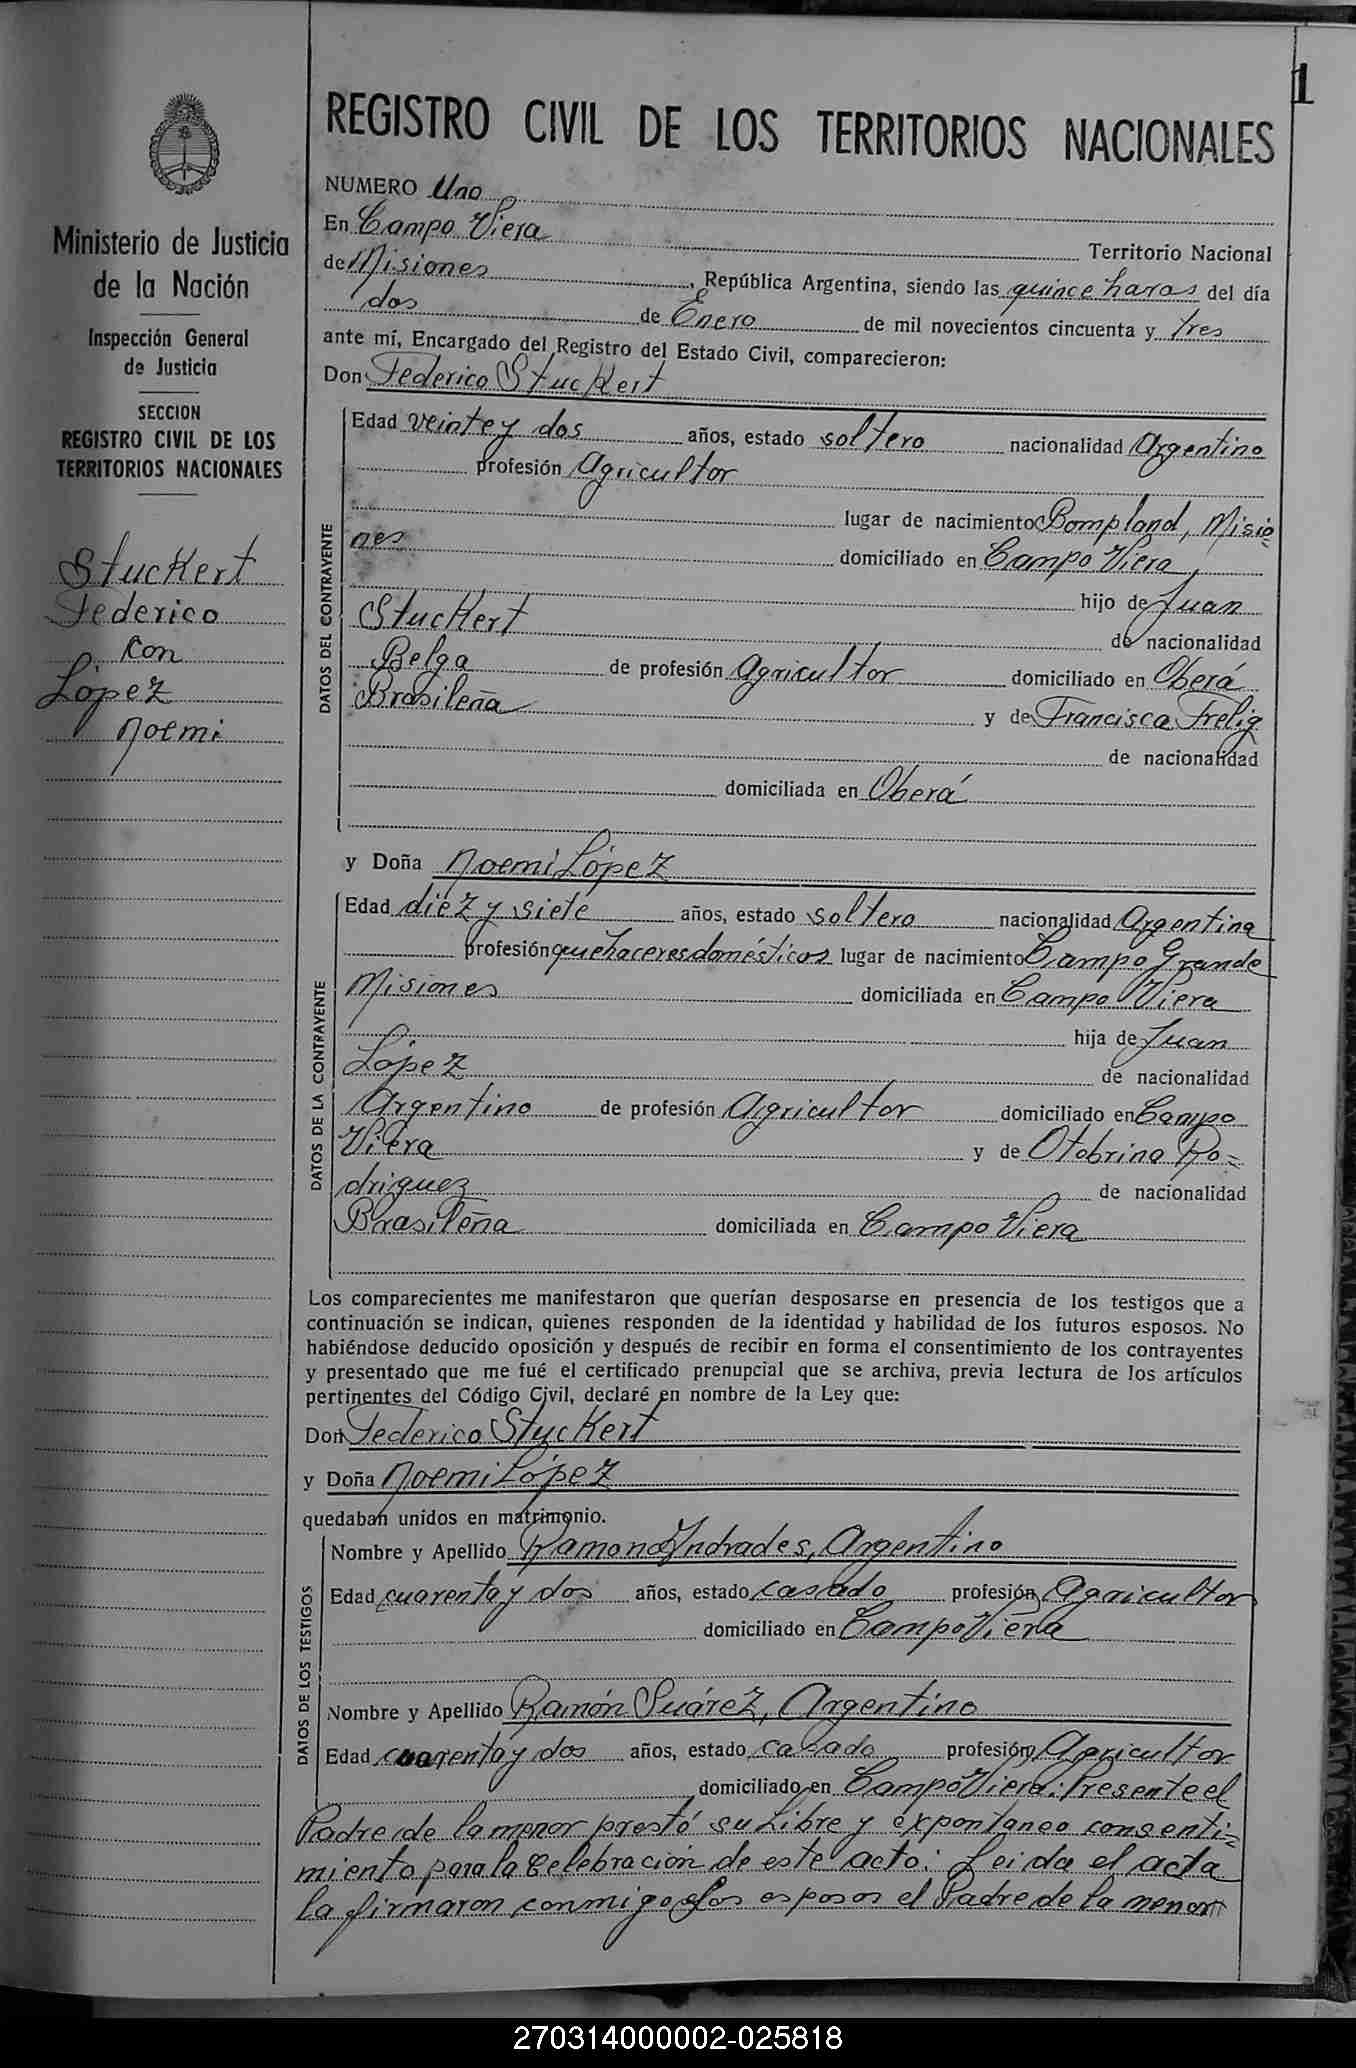 1
REGISTRO CIVIL DE LOS TERRITORIOS NACIONALES
Ministerio de Justicia
de la Nación
Inspección General
de Justicia
SECCION
REGISTRO CIVIL DE LOS
TERRITORIOS NACIONALES
Stuckert
Federico
con
López
Noemi
NUMERO Uno
En Campo Viera Territorio Nacional
de Misiones, República Argentina, siendo las quince horas del día
dos de Enero de mil novecientos cincuenta y tres
ante mí, Encargado del Registro del Estado Civil, comparecieron:
Don Federico Stuckert
DATOS DEL CONTRAYENTE
Edad veinte y dos años, estado soltero nacionalidad Argentino
profesión Agricultor
lugar de nacimiento Bompland, Misio=
nes domiciliado en Campo Viera,
hijo de Juan
Stuckert de nacionalidad
Belga de profesión Agricultor domiciliado en Oberá
Brasileña y de Francisca Frelig
de nacionalidad
domiciliada en Oberá
y Doña Noemi López
DATOS DE LA CONTRAYENTE
Edad diez y siete años, estado soltero nacionalidad Argentina
profesión quehaceres domésticos lugar de nacimiento Campo Grande
Misiones domiciliada en Campo Viera
hija de Juan
López de nacionalidad
Argentino de profesión Agricultor domiciliado en Campo
Viera y de Otobrina Ro=
driguez de nacionalidad
Brasileña domiciliada en Campo Viera
Los comparecientes me manifestaron que querían desposarse en presencia de los testigos que a
continuación se indican, quienes responden de la identidad y habilidad de los futuros esposos. No
habiéndose deducido oposición y después de recibir en forma el consentimiento de los contrayentes
y presentado que me fué el certificado prenupcial que se archiva, previa lectura de los artículos
pertinentes del Código Civil, declaré en nombre de la Ley que:
Don Federico Stuckert
y Doña Noemi López
quedaban unidos en matrimonio.
DATOS DE LOS TESTIGOS
Nombre y Apellido Ramona Andrades, Argentino
Edad cuarenta y dos años, estado casado profesión Agricultor
domiciliado en Campo Viera
Nombre y Apellido Ramón Suárez, Argentino
Edad cuarenta y dos años, estado casado profesión Agricultor
domiciliado en Campo Viera: Presente el
Padre de la menor prestó su Libre y expontaneo consenti=
miento para la Celebración de este acto: Leida el acta
la firmaron conmigo los esposos el Padre de la menor
270314000002-025818